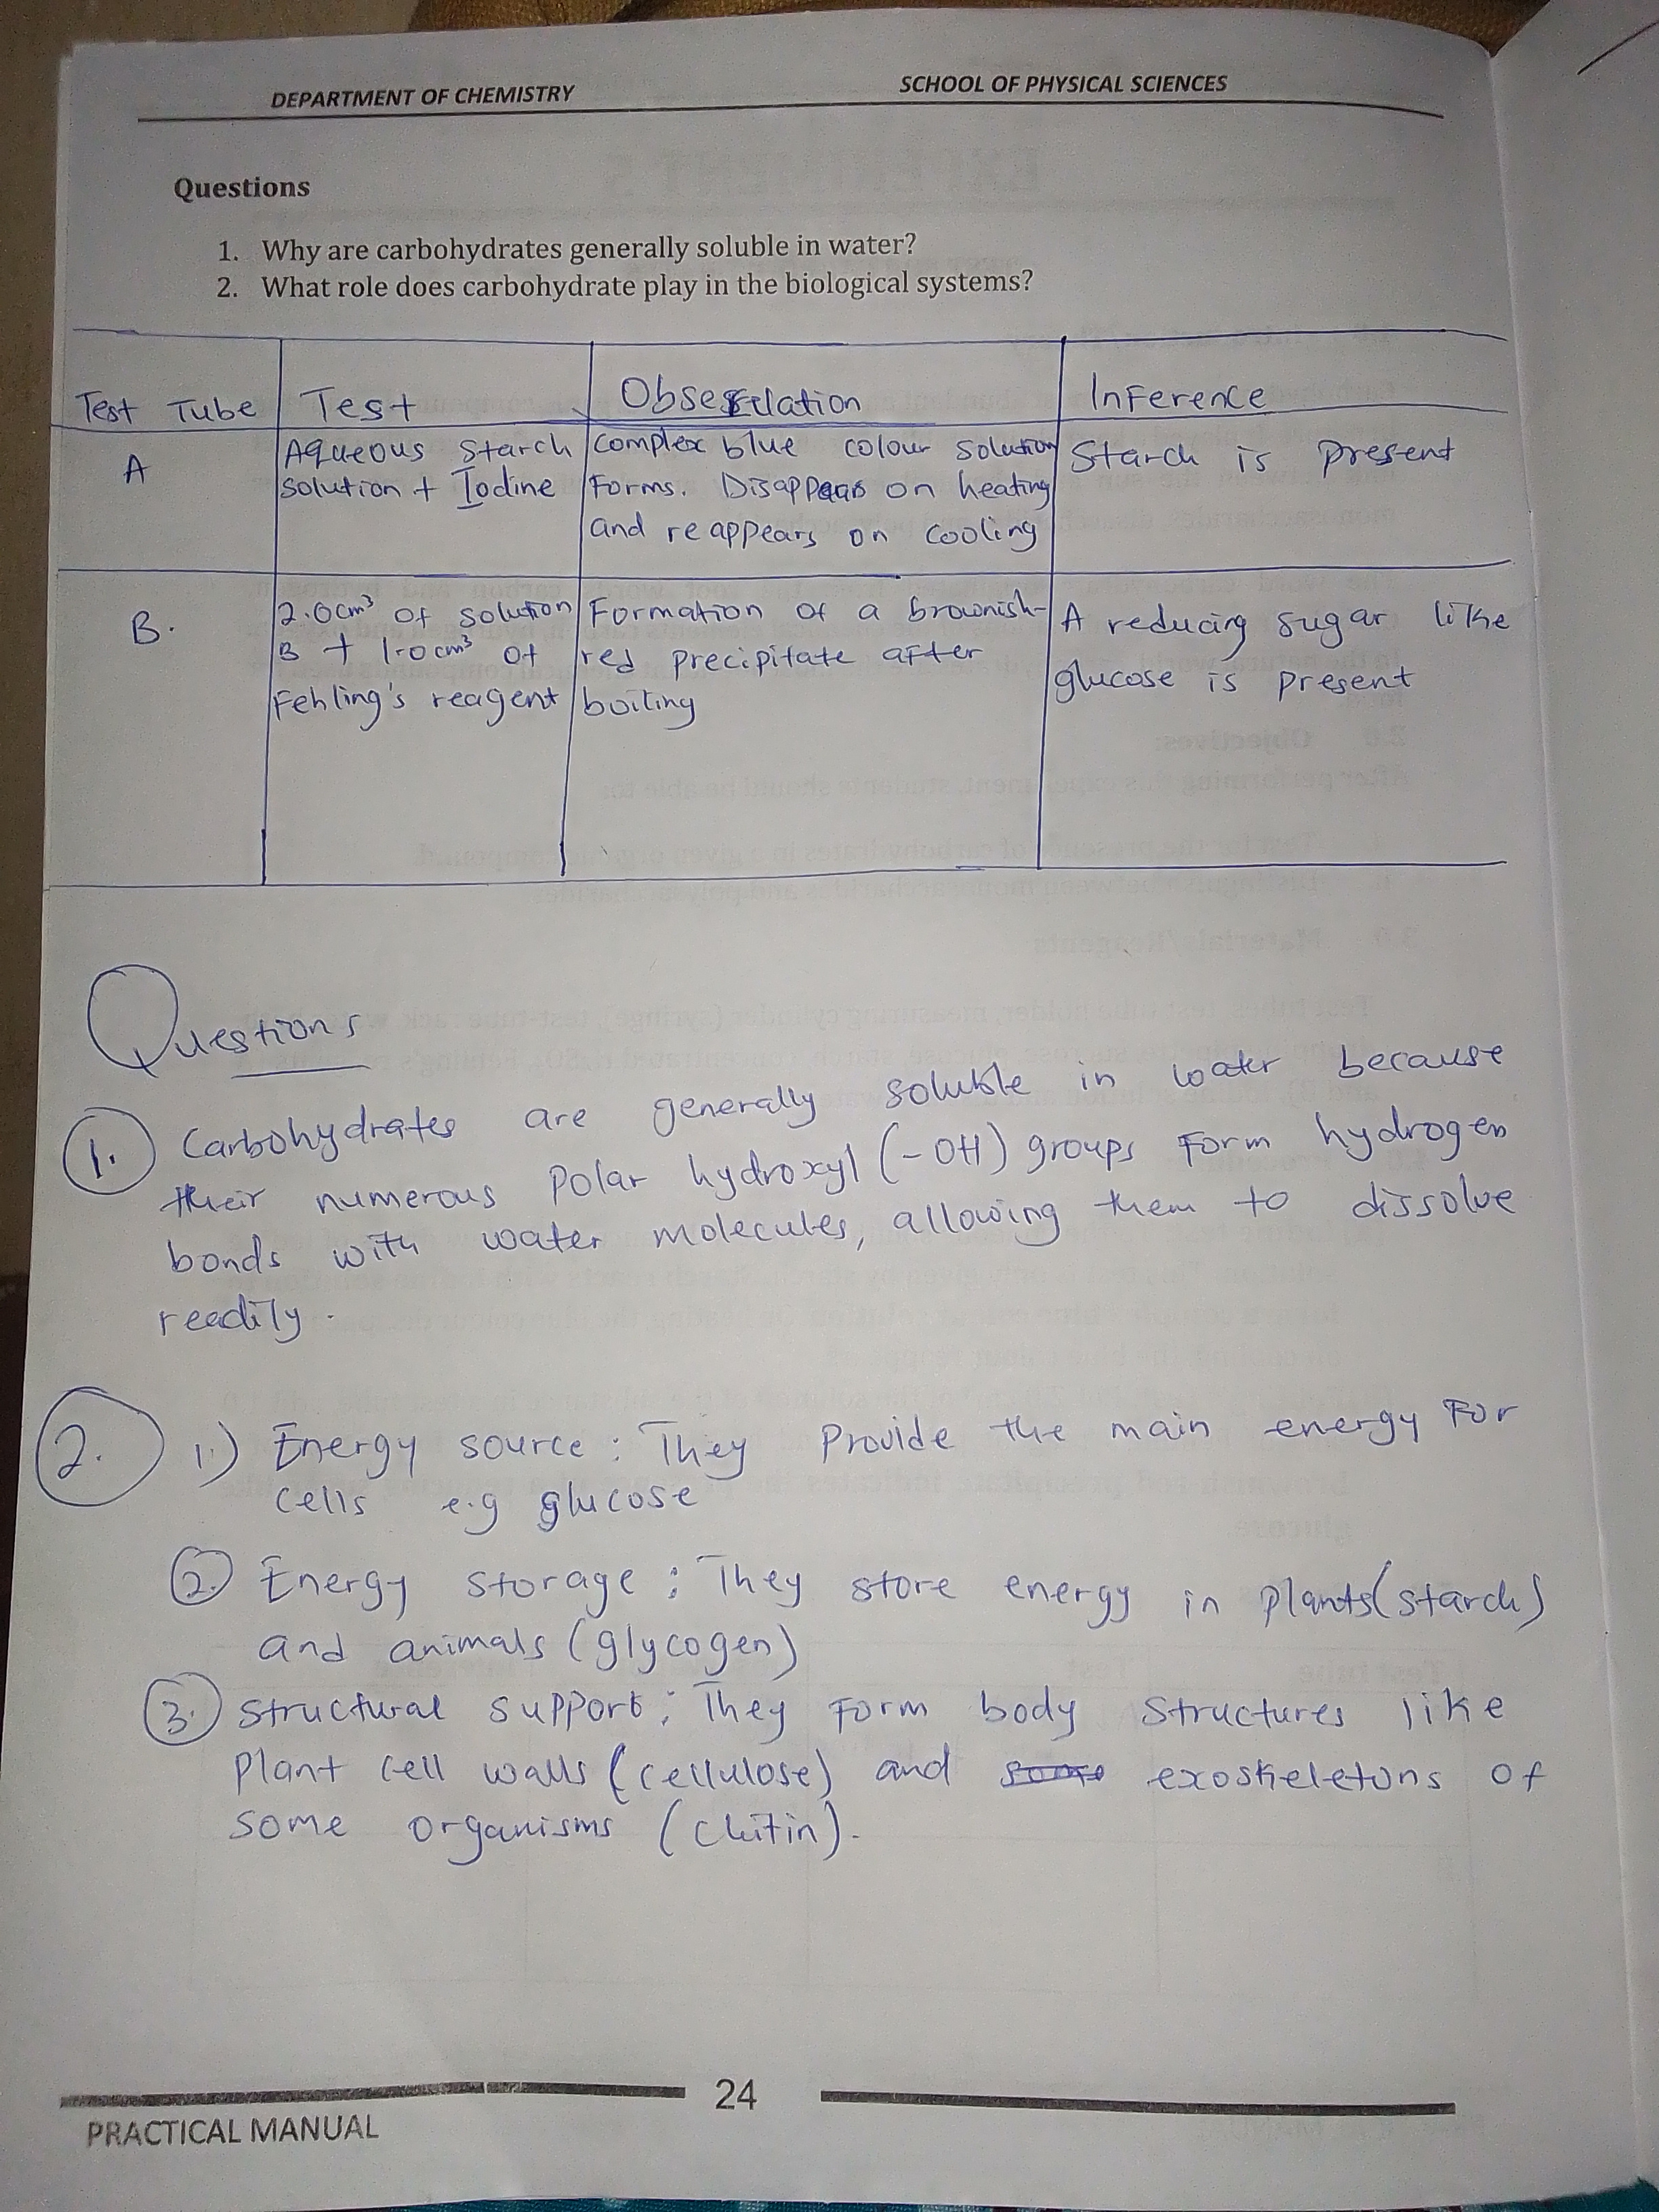 DEPARTMENT OF CHEMISTRY SCHOOL OF PHYSICAL SCIENCES
Questions
1. Why are carbohydrates generally soluble in water?
2. What role does carbohydrate play in the biological systems?
Test Tube Test Observation Inference
A
Aqueous starch
solution + Iodine
Complex blue colour solution
Forms. Disappears on heating
and reappears on cooling
Starch is present
B.
2.0cm³ of solution
B + 1.0cm³ of
Fehling's reagent
Formation of a brownish-
red precipitate after
boiling
A reducing sugar like
glucose is present
Questions
1. Carbohydrates are generally soluble in water because
their numerous polar hydroxyl (-OH) groups form hydrogen
bonds with water molecules, allowing them to dissolve
readily.
2. 1) Energy source: They provide the main energy for
cells e.g glucose
2. Energy storage: They store energy in plants(starch)
and animals (glycogen)
3. Structural support: They form body structures like
plant cell walls (cellulose) and exoskeletons of
some organisms (chitin).
24
PRACTICAL MANUAL